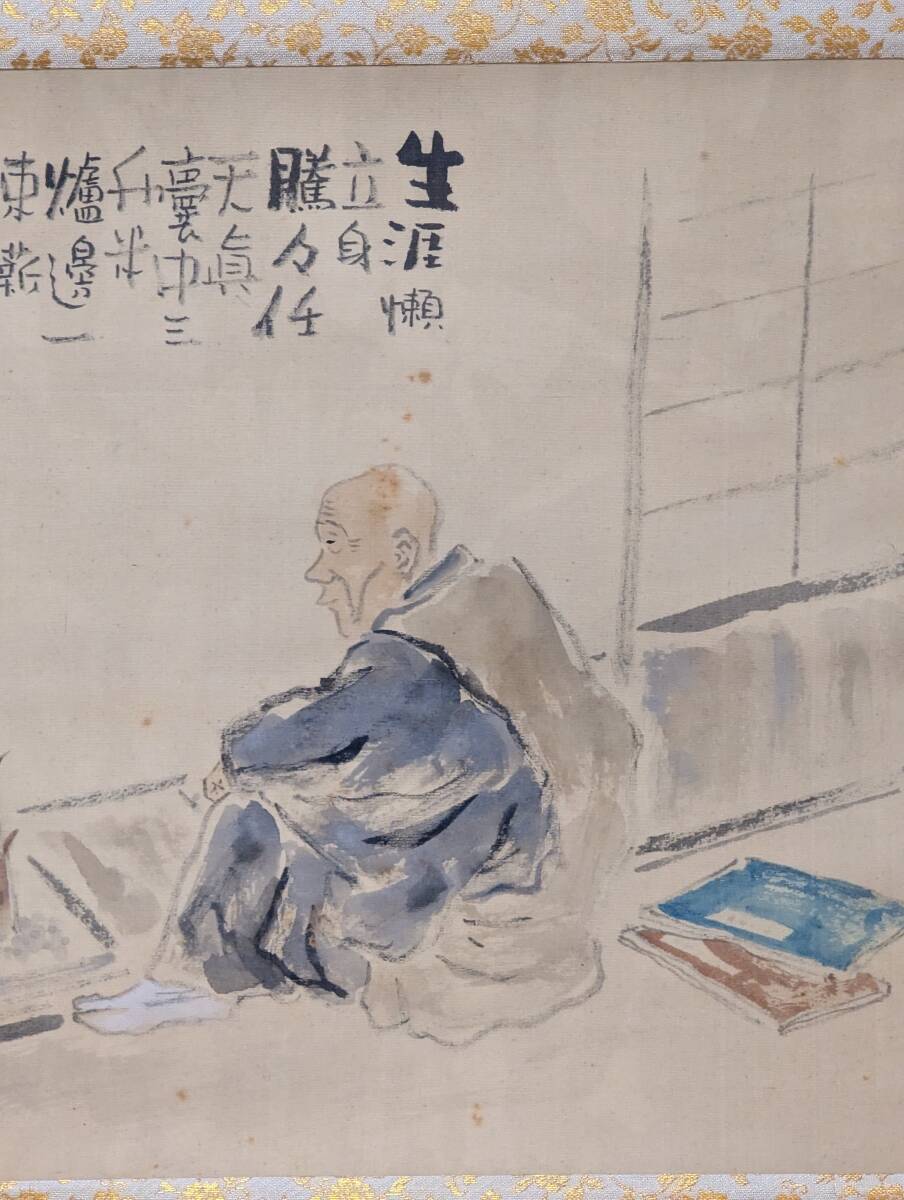 生涯懶
立身
騰々任
天真
嚢中三
升米
爐邊一
束薪